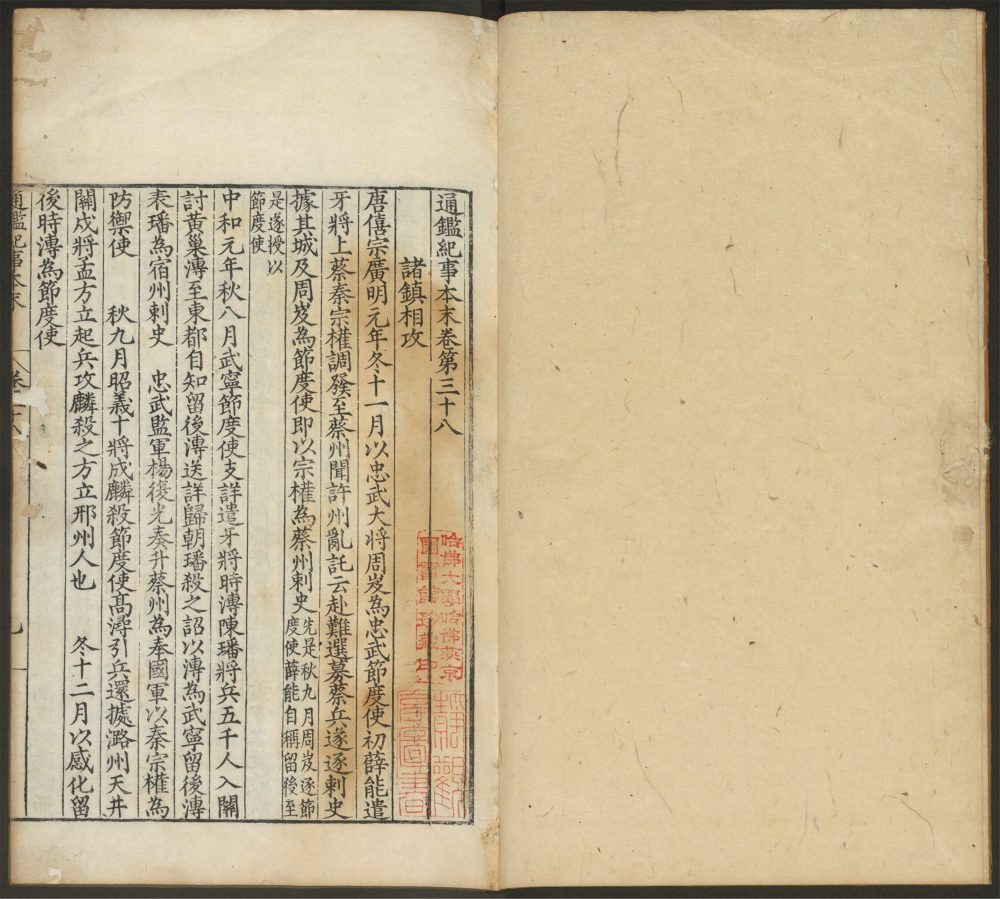 通鑑紀事本末卷第三十八
諸鎮相攻
唐僖宗廣明元年冬十一月以忠武大將周岌為忠武節度使初薛能遣
牙將上蔡秦宗權調發至蔡州聞許州亂託云赴難選募蔡兵遂逐刺史
據其城及周岌為節度使即以宗權為蔡州刺史先是秋九月周岌逐節
度使薛能自稱留後至
是遂授以
節度使
中和元年秋八月武寧節度使支詳遣牙將時溥陳璠將兵五千人入關
討黃巢溥至東都自知留後溥送詳歸朝璠殺之詔以溥為武寧留後溥
表璠為宿州刺史 忠武監軍楊復光奏升蔡州為奉國軍以秦宗權為
防禦使 秋九月昭義十將成麟殺節度使高潯引兵還據潞州天井
關戍將孟方立起兵攻麟殺之方立邢州人也 冬十二月以感化留
後時溥為節度使
通鑑紀事本末
哈佛大學哈佛燕京
圖書館珍藏印